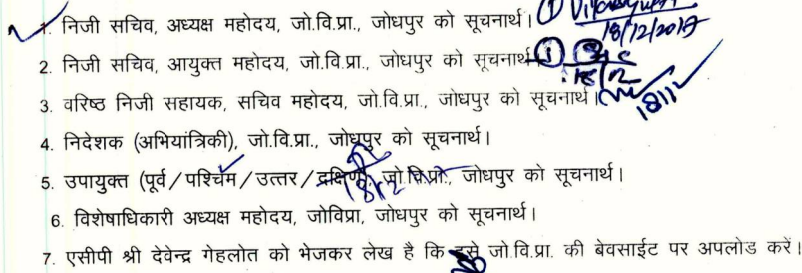 1. निजी सचिव, अध्यक्ष महोदय, जो.वि.प्रा., जोधपुर को सूचनार्थ।
18/12/2017
2. निजी सचिव, आयुक्त महोदय, जो.वि.प्रा., जोधपुर को सूचनार्थ
3. वरिष्ठ निजी सहायक, सचिव महोदय, जो.वि.प्रा., जोधपुर को सूचनार्थ।
4. निदेशक (अभियांत्रिकी), जो.वि.प्रा., जोधपुर को सूचनार्थ।
5. उपायुक्त (पूर्व/पश्चिम/उत्तर/दक्षिण), जो.वि.प्रा., जोधपुर को सूचनार्थ।
6. विशेषाधिकारी अध्यक्ष महोदय, जोविप्रा, जोधपुर को सूचनार्थ।
7. एसीपी श्री देवेन्द्र गेहलोत को भेजकर लेख है कि इसे जो.वि.प्रा. की बेवसाईट पर अपलोड करें।